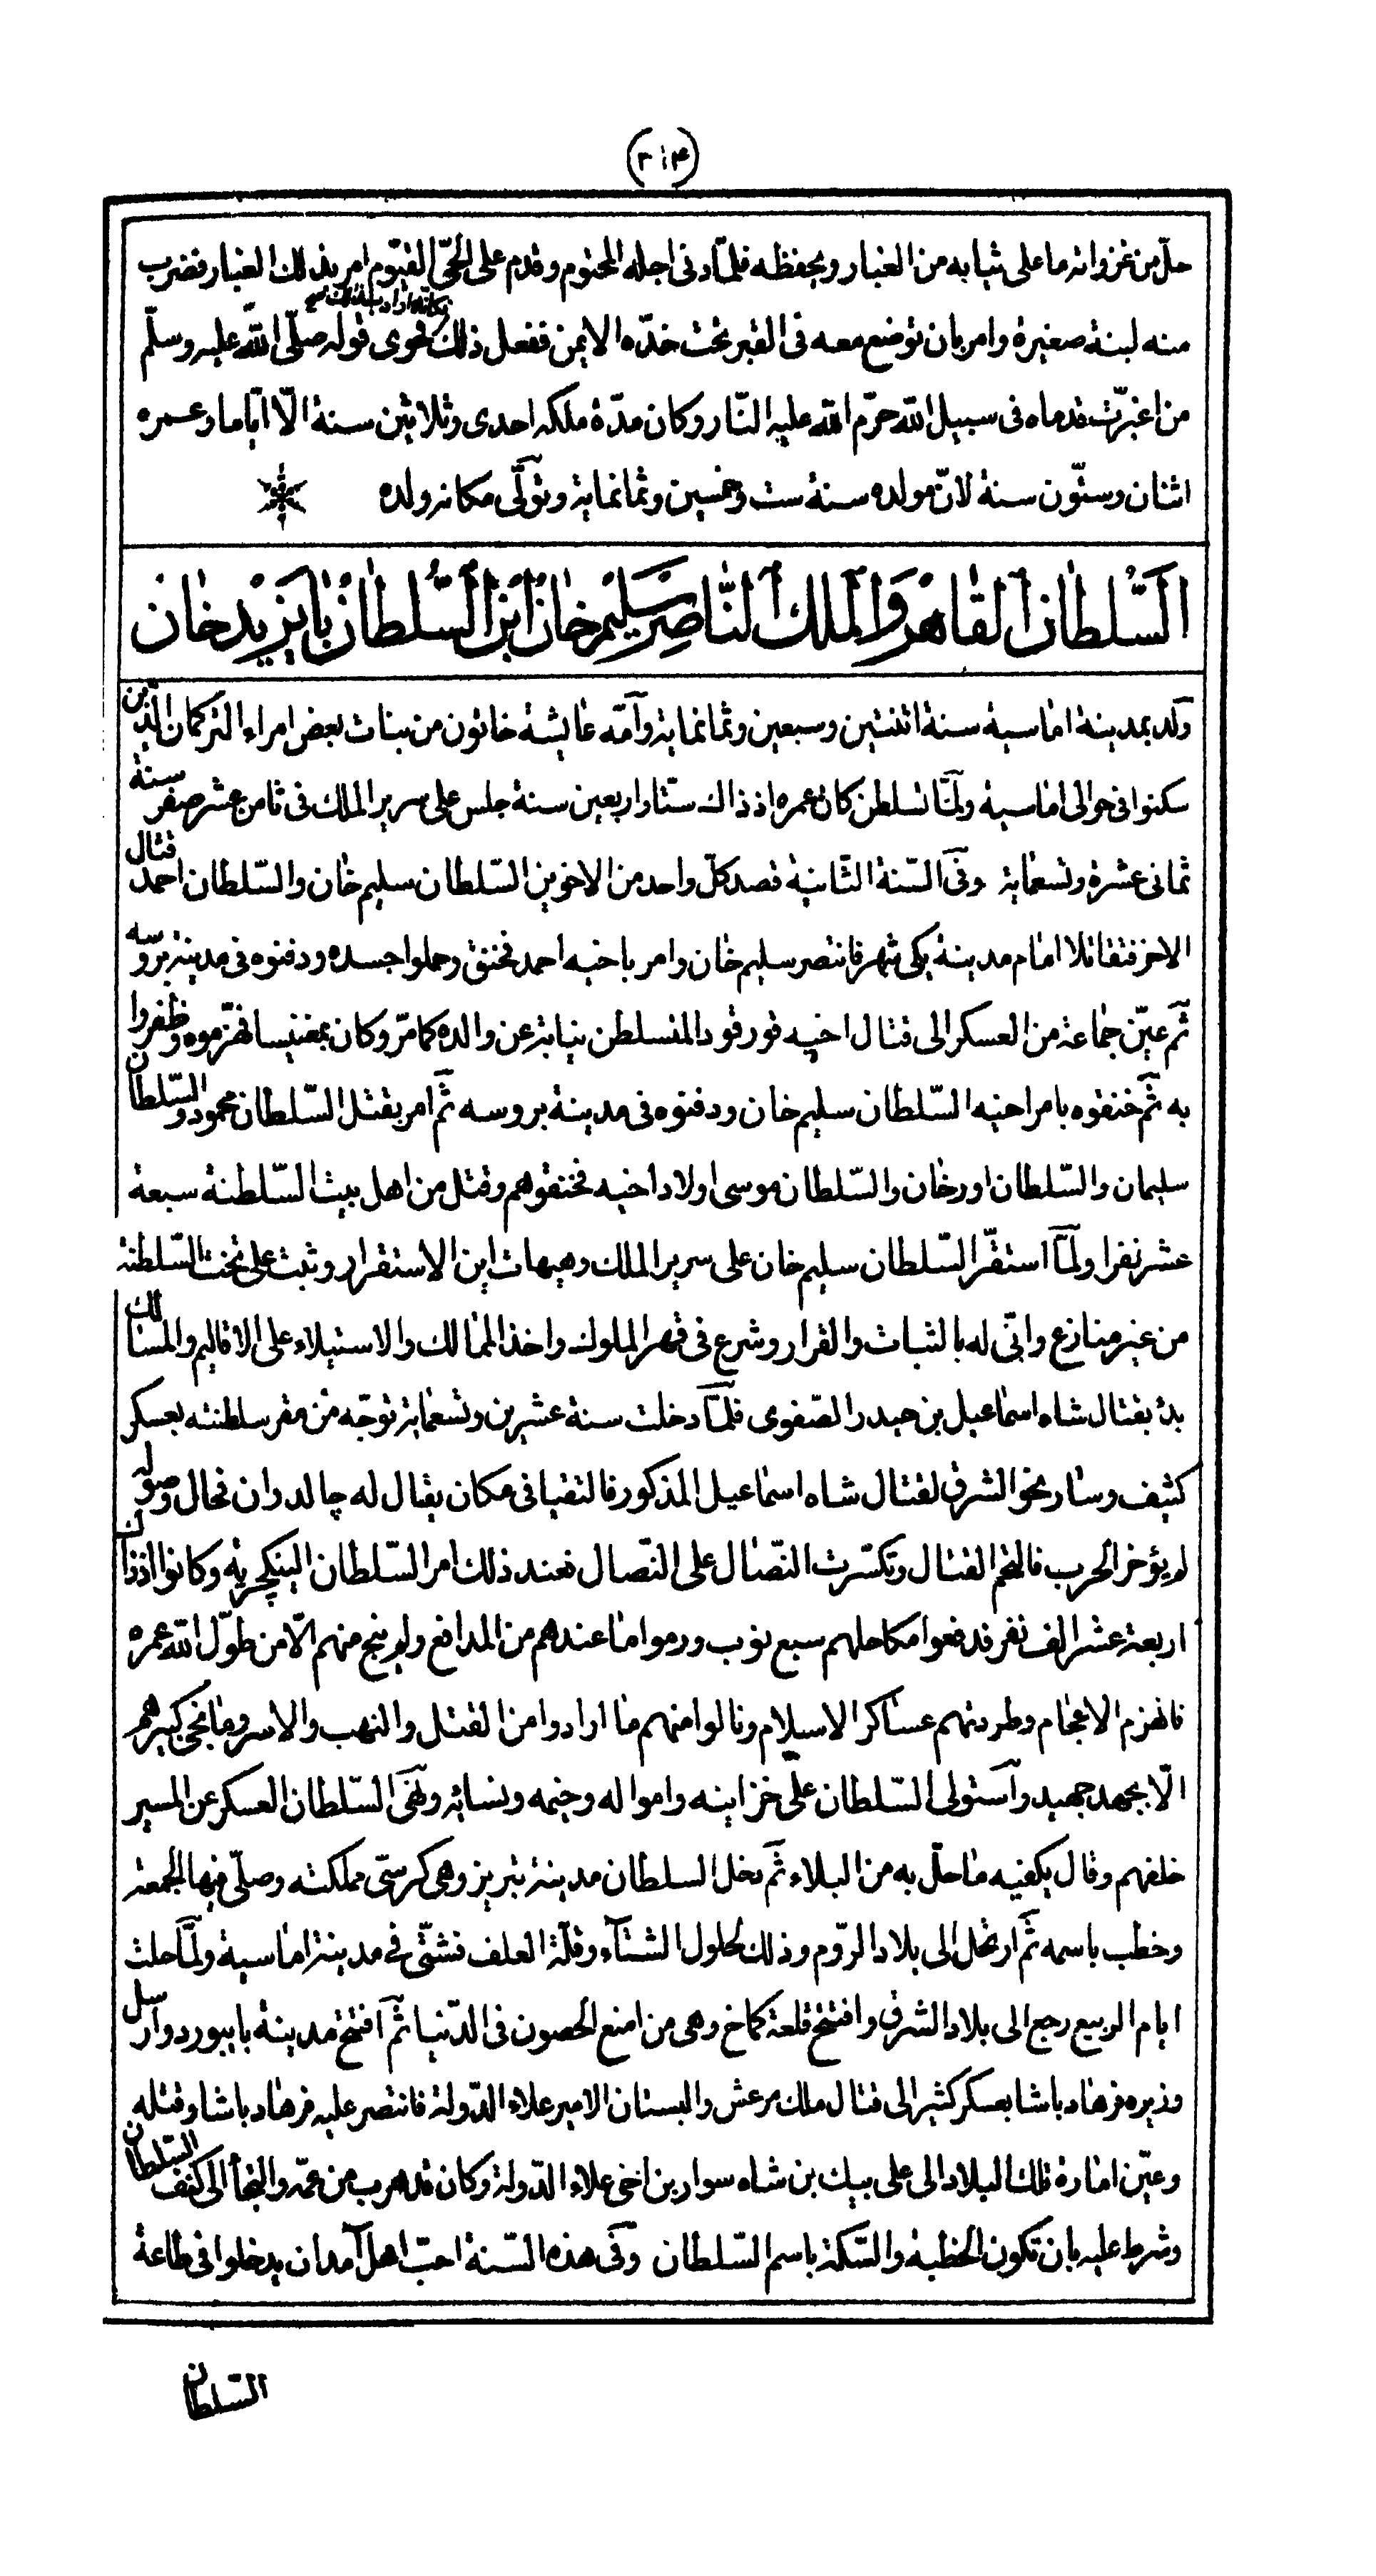 (٣١٤)
حلّ من غزواته ما على ثيابه من الغبار ويحفظه فلمّا دنى اجله المحتوم وقدم على الحىّ القيّوم امر بذلك الغبار فضرب
منه لبنة صغيرة وامر بان توضع معه فى القبر تحت خدّه الايمن ففعل ذلك فحوى قوله صلّى الله عليه وسلّم
من اغبرّت قدماه فى سبيل الله حرّم الله عليه النّار وكان مدّة ملكه احدى وثلاثين سنة الّا ايّاما وعمره
اثنان وستّون سنة لانّ مولده سنة ست وخمسين وثمانماية وتولّى مكانه ولده
السّلطان القاهر والملك النّاصر سليم خان ابن السّلطان بايزيد خان
ولد بمدينة اماسية سنة اثنتين وسبعين وثمانماية وامّه عايشة خاتون من بنات بعض امراء التركمان الذين
سكنوا فى حوالى اماسية ولمّا تسلطن كان عمره اذ ذاك ستّا واربعين سنة جلس على سرير الملك فى ثامن عشر صفر سنة
ثمانى عشرة وتسعماية وفى السّنة الثّانية قصد كلّ واحد من الاخوين السّلطان سليم خان والسّلطان احمد قتال
الاخر فتقاتلا امام مدينة يكى شهر فانتصر سليم خان وامر باخيه احمد فخنق وحملوا جسده ودفنوه فى مدينة بروسه
ثمّ عيّن جماعة من العسكر الى قتال اخيه قورقود المتسلطن نيابة عن والده كما مرّ وكان بمغنيسا فهزموه وظفروا
به ثمّ خنقوه بامر اخيه السّلطان سليم خان ودفنوه فى مدينة بروسه ثمّ امر بقتل السّلطان محمود والسّلطان
سليمان والسّلطان اورخان والسّلطان موسى اولاد اخيه فخنقوهم وقتل من اهل بيت السّلطنة سبعة
عشر نفرا ولمّا استقرّ السّلطان سليم خان على سرير الملك وهيهات اين الاستقرار وثبت على تخت السّلطنة
من غير منازع وانّى له بالثبات والقرار وشرع فى قهر الملوك واخذ الممالك والاستيلاء على الاقاليم والمسالك
بدأ بقتال شاه اسماعيل بن حيدر الصّفوى فلمّا دخلت سنة عشرين وتسعماية توجّه من مقر سلطنته بعسكر
كثيف وسار نحو الشرق لقتال شاه اسماعيل المذكور فالتقيا فى مكان يقال له چالدران فحال وصوله
لم يؤخر الحرب فالتحم القتال وتكسّرت النّصال على النّصال فعند ذلك امر السّلطان الينكچرية وكانوا اذ ذاك
اربعة عشر الف نفر فدفعوا مكاحلهم سبع نوب ورموا ما عندهم من المدافع ولم ينج منهم الّا من طوّل الله عمره
فانهزم الاعجام وطردتهم عساكر الاسلام ونالوا منهم ما ارادوا من القتل والنهب والاسر وما نجى كبيرهم
الّا بجهد جهيد واستولى السّلطان على خزاينه وامواله وخيمه ونسائه ونهى السّلطان العسكر عن المسير
خلفهم وقال يكفيه ما حلّ به من البلاء ثمّ دخل السلطان مدينة تبريز وهى كرسىّ مملكته وصلّى فيها الجمعة
وخطب باسمه ثمّ ارتحل الى بلاد الرّوم وذلك لحلول الشتاء وقلّة العلف فشتّى فى مدينة اماسية ولمّا حلت
ايام الربيع رجع الى بلاد الشرق وافتتح قلعة كماخ وهى من امنع الحصون فى الدّنيا ثمّ افتتح مدينة بايبورد وارسل
وزيره فرهاد باشا بعسكر كثير الى قتال ملك مرعش والبستان الامير علاء الدّولة فانتصر عليه فرهاد باشا وقتله
وعيّن امارة تلك البلاد الى على بيك بن شاه سوار بن اخى علاء الدّولة وكان قد هرب من عمّه والتجأ الى كنف السّلطان
وشرط عليه بان تكون الخطبة والسّكة باسم السّلطان وفى هذه السّنة احبّ اهل آمد ان يدخلوا فى طاعة
السّلطان